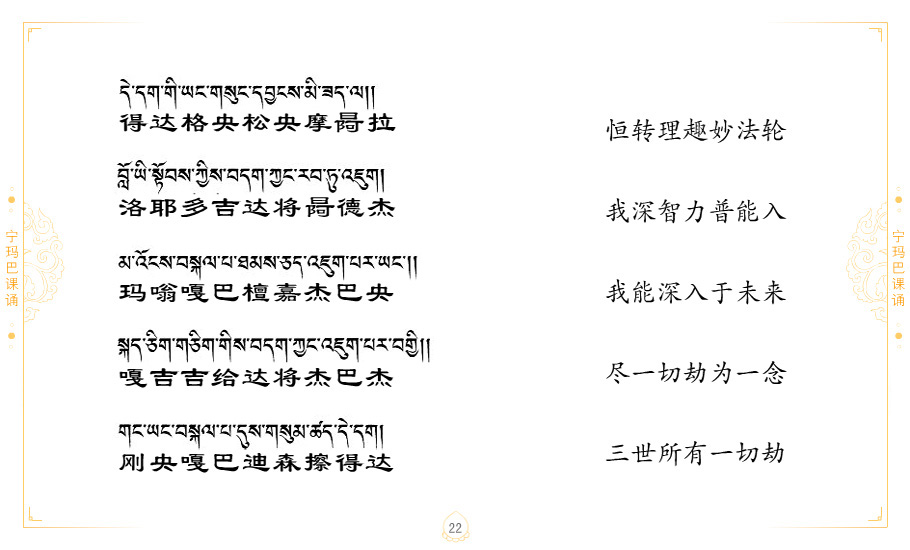 དེ་དག་གི་ཡང་གསུང་དབྱངས་མི་ཟད་ལ།།
得达格央松央摩噶拉
恒转理趣妙法轮
བློ་ཡི་སྟོབས་ཀྱིས་བདག་ཀྱང་རབ་ཏུ་འཇུག།
洛耶多吉达将噶德杰
我深智力普能入
མ་འོངས་བསྐལ་པ་ཐམས་ཅད་འཇུག་པར་ཡང་།།
玛嗡嘎巴檀嘉杰巴央
我能深入于未来
སྐད་ཅིག་གཅིག་གིས་བདག་ཀྱང་འཇུག་པར་བགྱི།།
嘎吉吉给达将杰巴杰
尽一切劫为一念
གང་ཡང་བསྐལ་པ་དུས་གསུམ་ཚད་དེ་དག།
刚央嘎巴迪森擦得达
三世所有一切劫
宁玛巴课诵
宁玛巴课诵
22